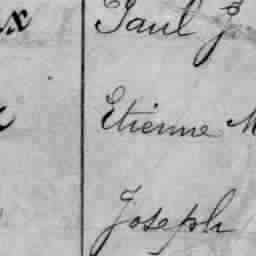 x Paul J
Etienne M
Joseph